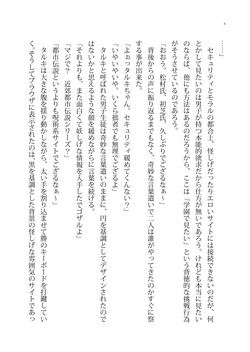 セキュリティとモラルの都合上、怪しげだったりエロいサイトには接続できないのだが、何
とかして見たいのは男子が持つ本能的欲求だから仕方が無いのであろう。けれども本当に見たい
のならば、他にも方法はあるのだろうから、ここは「学園で見たい」という背徳的な挑戦行為
がそうさせているのであろう。
「おおう、松村氏、初芝氏、久しぶりでござるなぁ」
背後からの声に振り返るまでもなく、奇妙な言葉遣いで二人は誰がやってきたのかすぐに察
する事が出来た。
「よおっタルキちゃん。セキュリティ緩めてくんない?」
「いやいやいや、いくら拙者でも無理でござるよ」
タルキと呼ばれた男子生徒は奇妙な言葉遣いのままに、円を基調としてデザインされたので
はないかと思えるような顔を緩めながらに言葉を続ける。
「それよりも、また面白くて妖しげな情報を入手したでゴザルよ」
「マジで? 近郊都市伝説シリーズ?」
「都市伝説というよりも呪術系サイトでござるなぁ~」
タルキは大きな腹を揺り動かしながら、太い手を割り込ませて勝のキーボードを打鍵してい
く。そうしてブラウザに表示されたのは、黒を基調とした背景の怪しげな雰囲気のサイトであっ